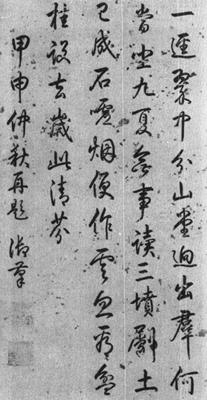 一逕翠中分山堂迥出群何
當坐九夏無事讀三墳斸土
已成石虛烟便作雲忽看盆
桂設去歲此清芬
甲申仲秋再題 御筆